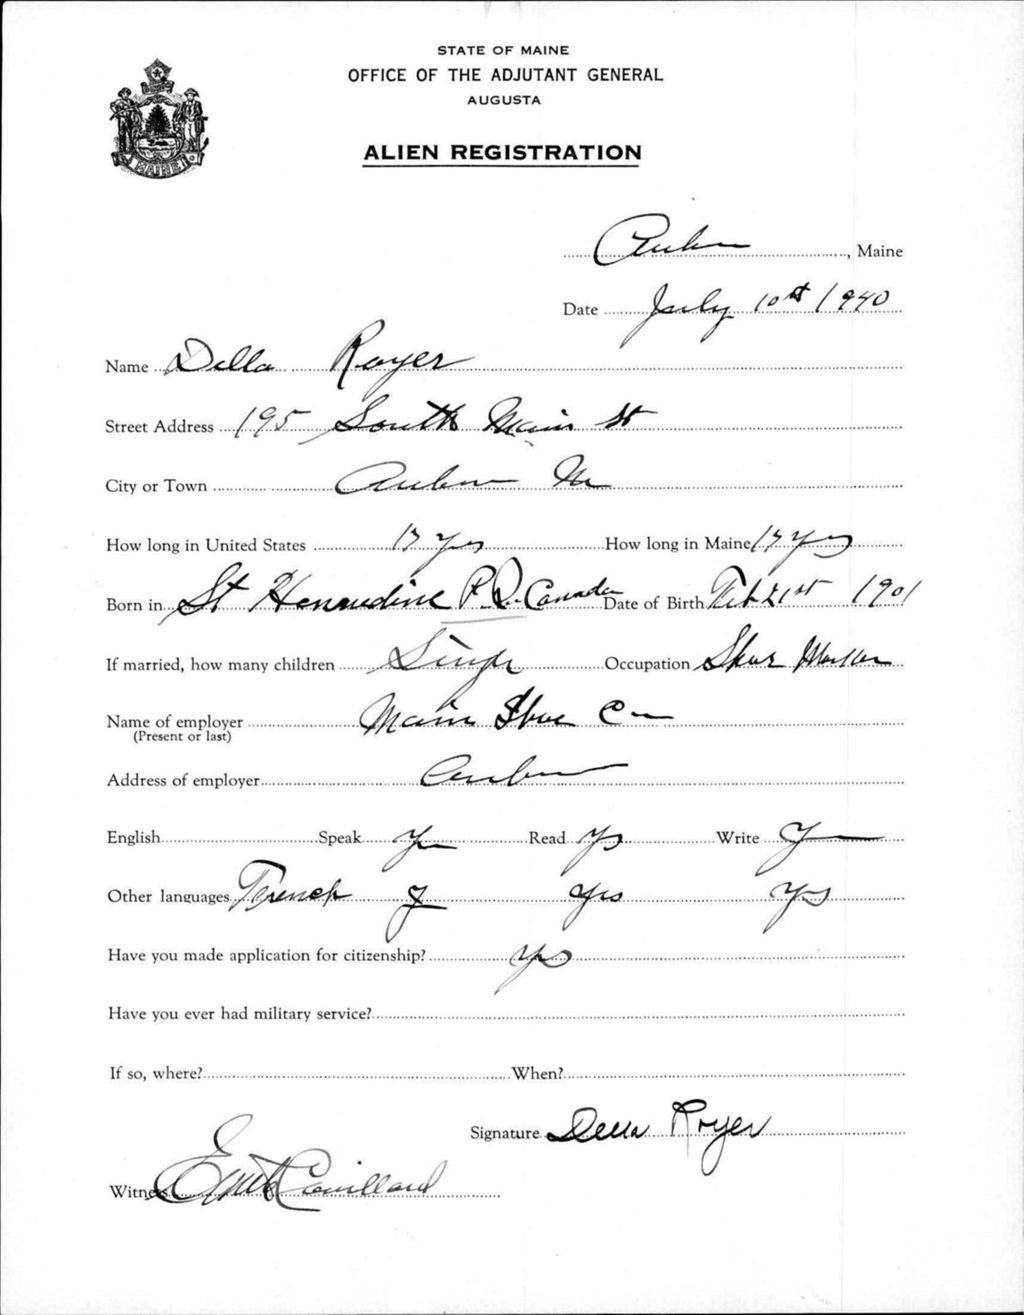 STATE OF MAINE
OFFICE OF THE ADJUTANT GENERAL
AUGUSTA
MAINE
ALIEN REGISTRATION
Auburn, Maine
Date July 10st 1940
Name Della Royer
Street Address 195 South Main St
City or Town Auburn Me
How long in United States 17 yrs How long in Maine 17 yrs
Born in St Hennedine P.Q. Canada Date of Birth Feb 21st 1901
If married, how many children Single Occupation Shoe Worker
Name of employer Maine Shoe Co
(Present or last)
Address of employer Auburn
English Speak Yes Read Yes Write Yes
Other languages French Yes Yes Yes
Have you made application for citizenship? Yes
Have you ever had military service?
If so, where? When?
Signature Della Royer
Witness